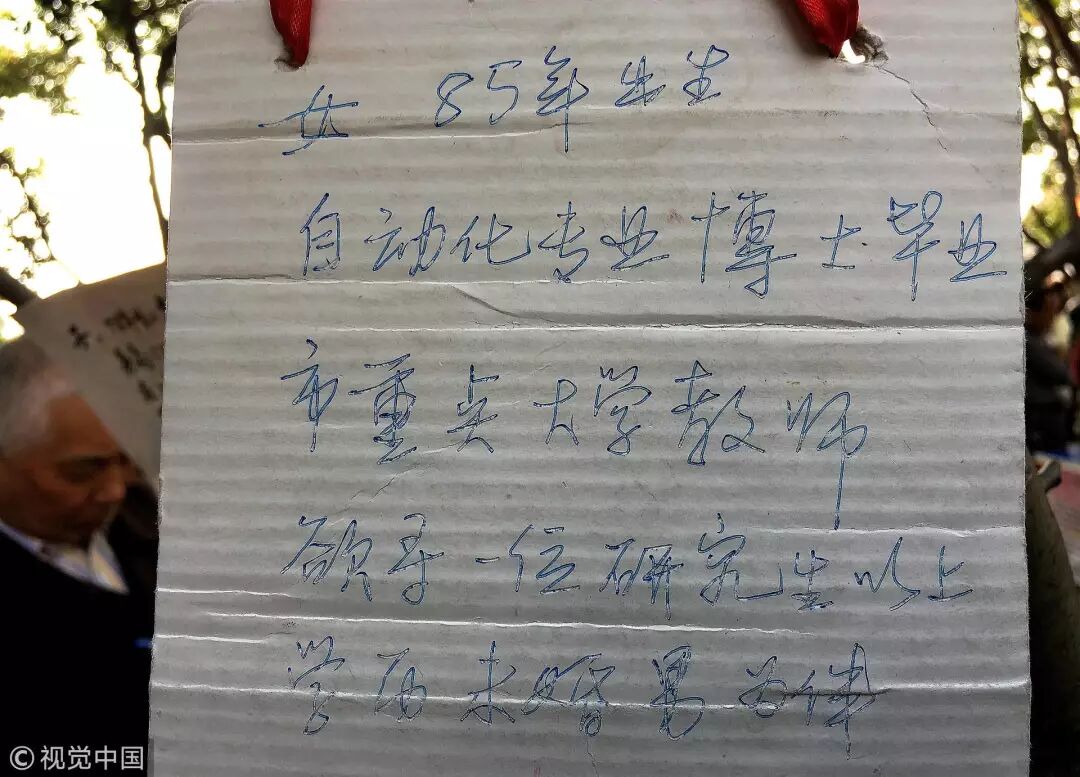 女 85年出生
自动化专业博士毕业
市重点大学教师
欲寻一位研究生以上
学历未婚男为伴
© 视觉中国